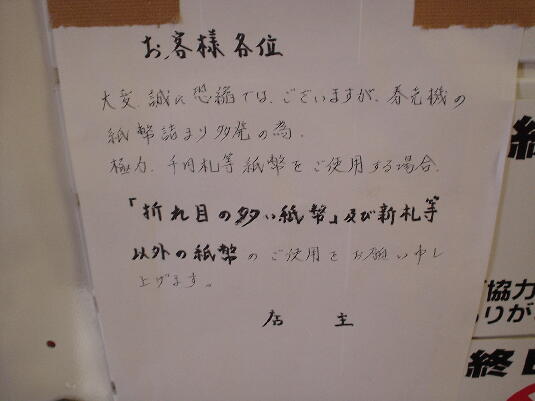 お客様各位
大変、誠に恐縮では、ございますが、券売機の
紙幣詰まり多発の為、
極力、千円札等紙幣をご使用する場合、
「折れ目の多い紙幣」及び新札等
以外の紙幣のご使用をお願い申し
上げます。
店 主
協力
りが
終日